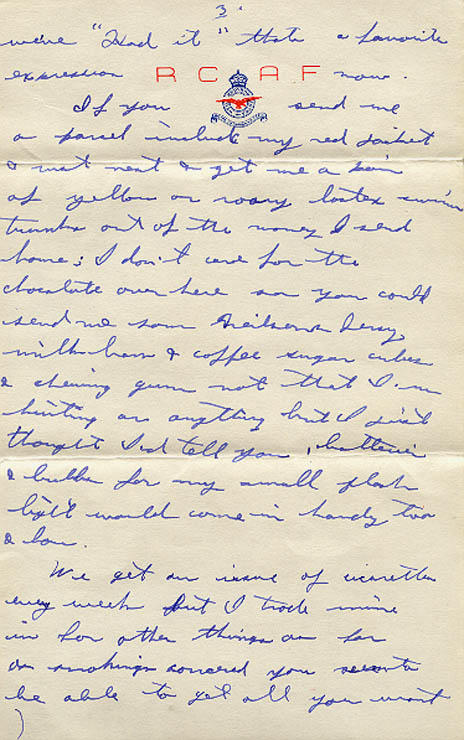 3
we've "Had it" thats a favorite
expression R C A F now.
If you send me
a parcel include my red jacket
& next & get me a pair
of yellow or lastex swim
trunks out of the money I send
home; I don't care for the
chocolate over here so you could
send me some Neilsons Jersy
milk & coffee sugar cubes
& chewing gum not that I'm
hinting or anything but I just
thought I'd tell you, batteries
& bulbs for my small flash
light would come in handy too
&
We get an issue of cigarettes
every week but I trade mine
in for other things as far
as smokings you seem to
be able to get all you want
)